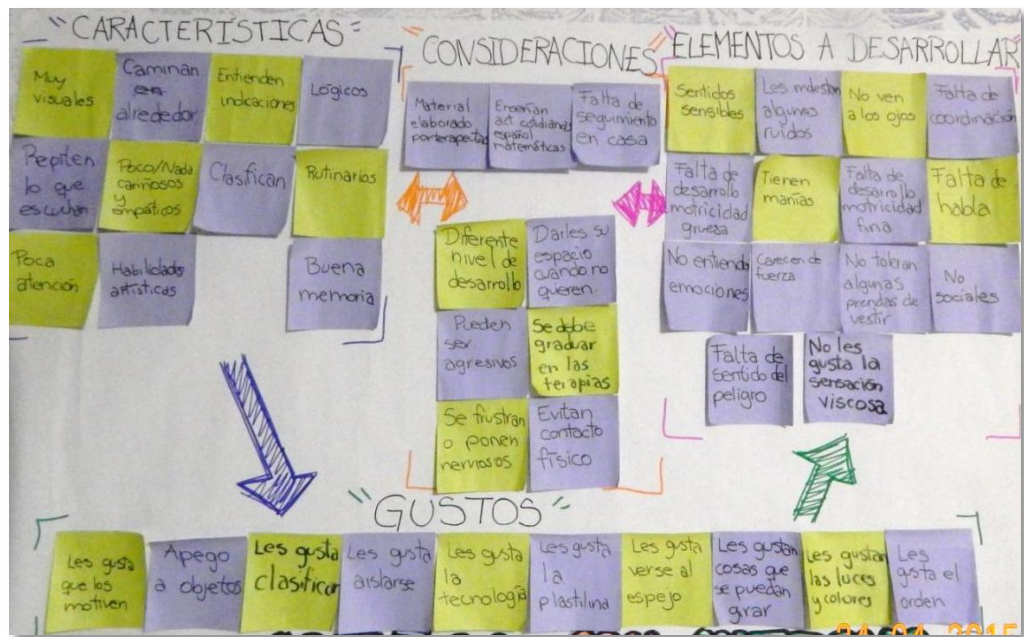 "CARACTERÍSTICAS"
Muy
visuales
Caminan
en
alrededor
Entienden
indicaciones
Lógicos
Repiten
lo que
escuchan
Poco/Nada
cariñosos
y
empáticos
Clasifican
Rutinarios
Poca
atención
Habilidades
artísticas
Buena
memoria
CONSIDERACIONES
Material
elaborado
por terapeutas
Enseñan
act cotidianas
español
matemáticas
Falta de
seguimiento
en casa
Diferente
nivel de
desarrollo
Darles su
espacio
cuando no
quieren.
Pueden
ser
agresivos
Se debe
graduar
en las
terapias
Se frustran
o ponen
nerviosos
Evitan
contacto
físico
"ELEMENTOS A DESARROLLAR"
Sentidos
sensibles
Les molestan
algunos
ruidos
No ven
a los ojos
Falta de
coordinación
Falta de
desarrollo
motricidad
gruesa
Tienen
manías
Falta de
desarrollo
motricidad
fina
Falta de
habla
No entienden
emociones
Carecen de
fuerza
No toleran
algunas
prendas de
vestir
No
sociales
Falta de
sentido del
peligro
No les
gusta la
sensación
viscosa
"GUSTOS"
Les gusta
que los
motiven
Apego
a objetos
Les gusta
clasificar
Les gusta
aislarse
Les gusta
la
tecnología
Les gusta
la
plastilina
Les gusta
verse al
espejo
Les gustan
cosas que
se puedan
girar
Les gustan
las luces
y colores
Les
gusta el
orden